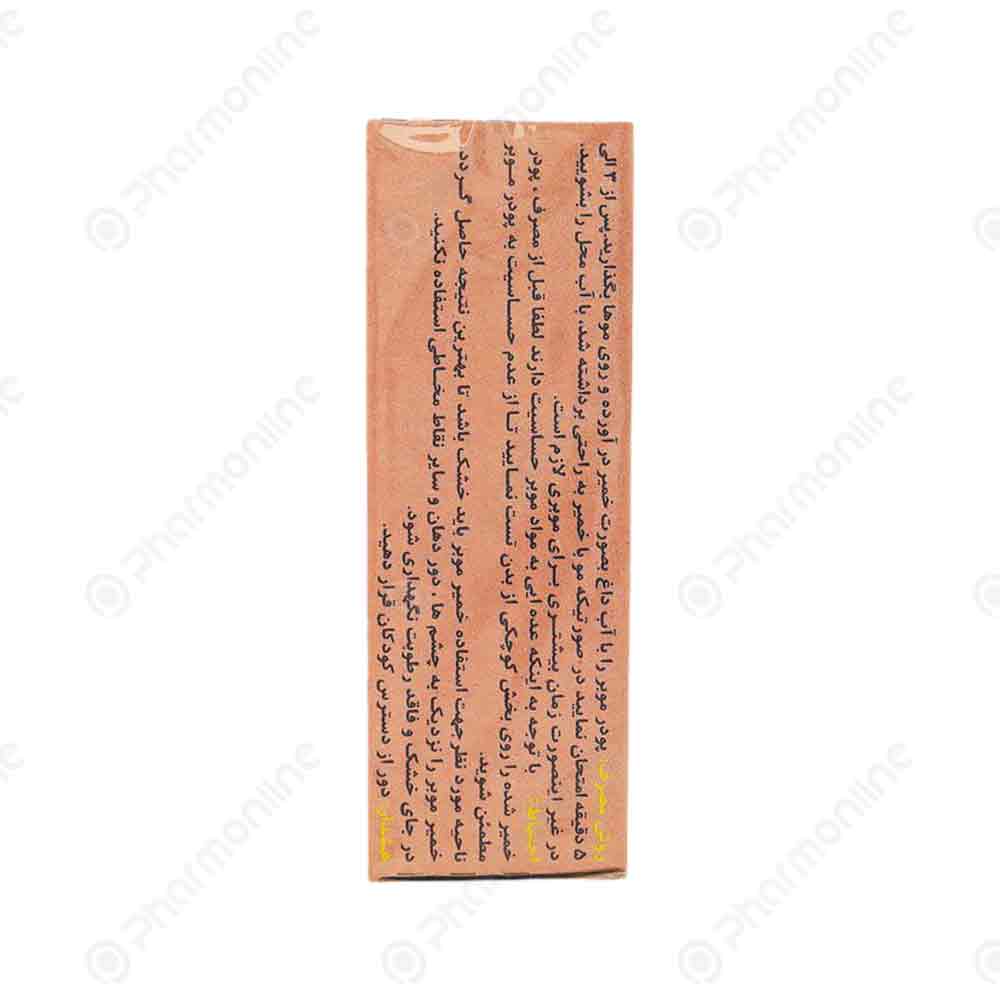 روش مصرف: پودر موبر را با آب داغ بصورت خمیر در آورده و روی موها بگذارید. پس از ۳ الی
۵ دقیقه امتحان نمایید در صورتیکه مو با خمیر به راحتی برداشته شد، با آب محل را بشویید.
در غیر اینصورت زمان بیشتری برای موبری لازم است.
احتیاط: با توجه به اینکه عده ایی به مواد موبر حساسیت دارند لطفا قبل از مصرف، پودر
خمیر شده را روی بخش کوچکی از بدن تست نمایید تا از عدم حساسیت به پودر موبر
مطمئن شوید.
ناحیه مورد نظر جهت استفاده خمیر موبر باید خشک باشد تا بهترین نتیجه حاصل گردد.
خمیر موبر را نزدیک به چشم ها، دور دهان و سایر نقاط مخاطی استفاده نکنید.
در جای خشک و فاقد رطوبت نگهداری شود.
هشدار: دور از دسترس کودکان قرار دهید.
Pharmonline